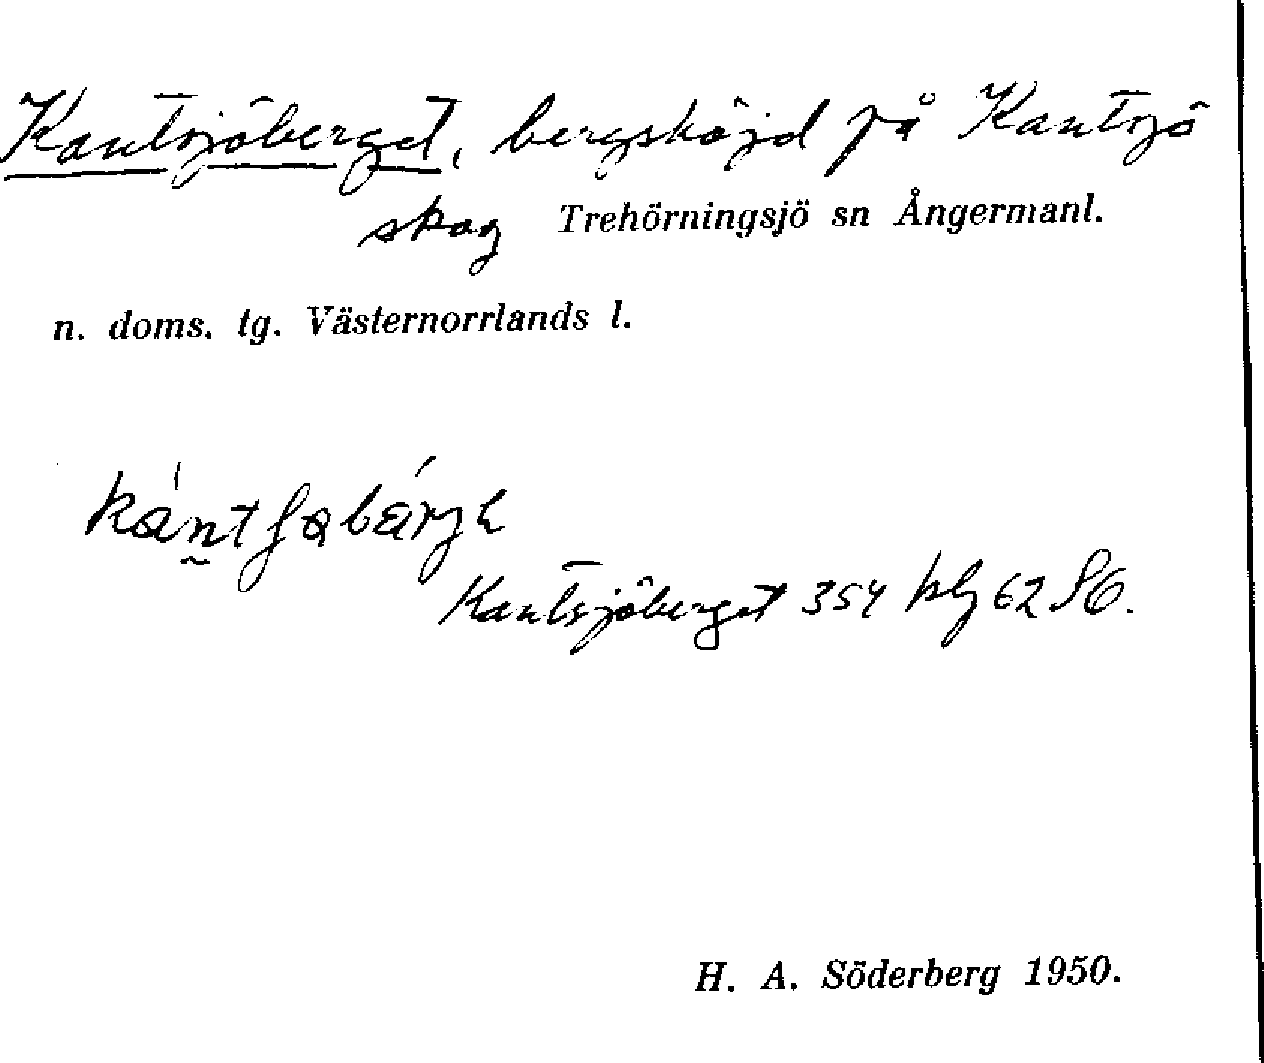 Kantsjöberget, bergshöjd på Kantsjö
skog Trehörningsjö sn Ångermanl.
n. doms. tg. Västernorrlands l.
Kantsjöberget 354 blg 62 SO.
H. A. Söderberg 1950.